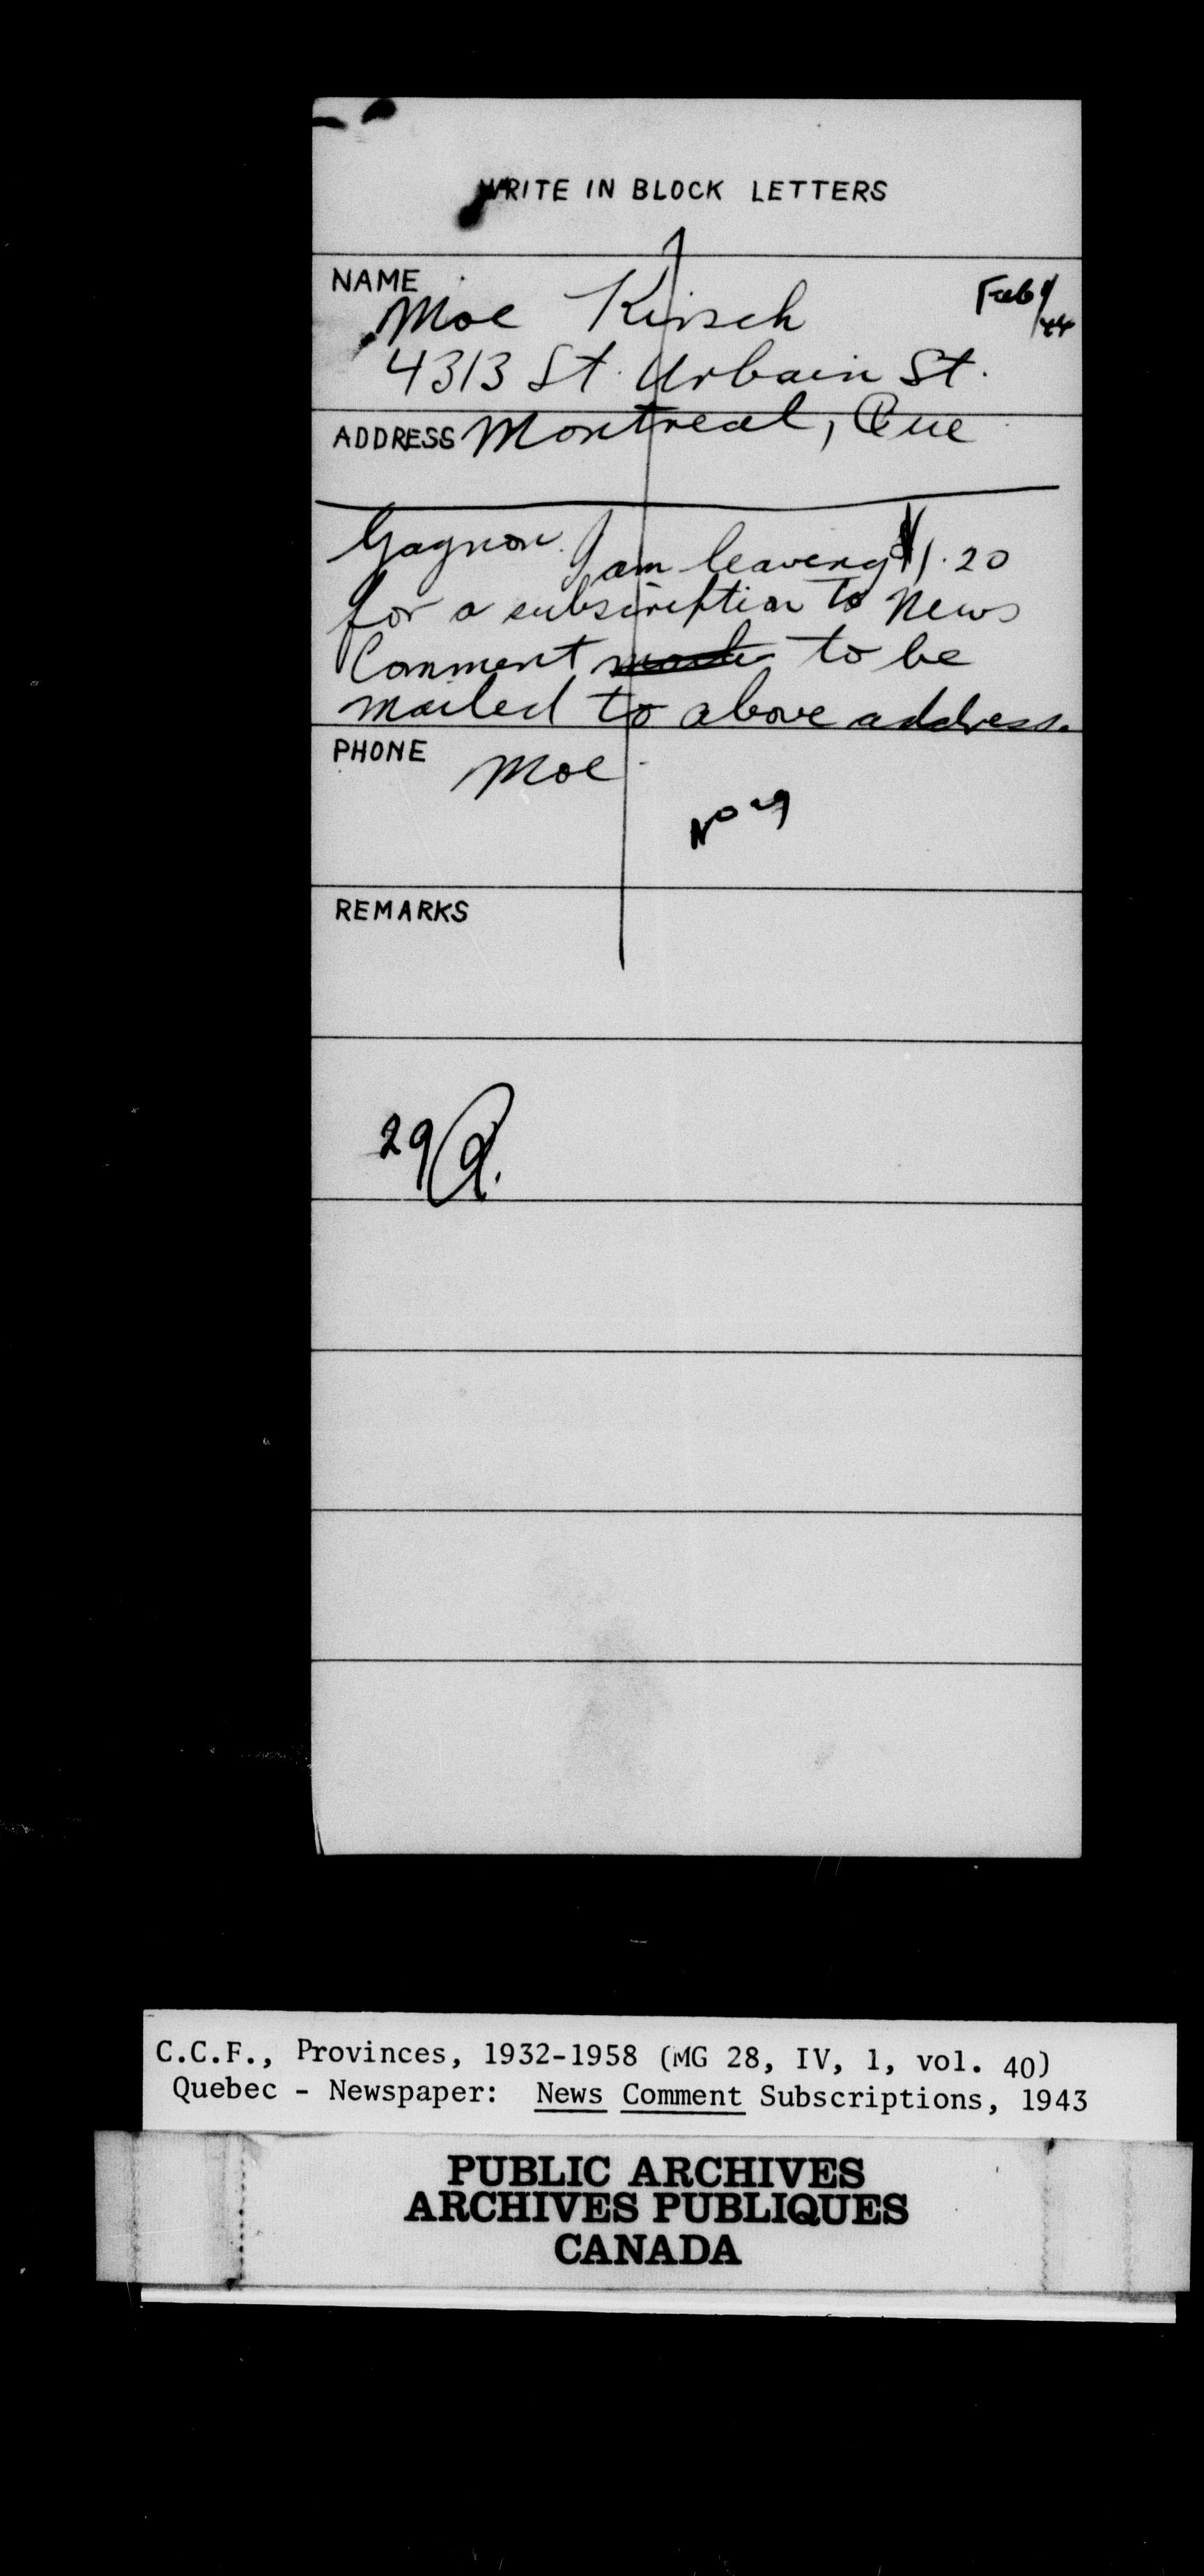 WRITE IN BLOCK LETTERS
NAME
Moe Kirsch
Feb 1/44
4313 St. Urbain St.
ADDRESS Montreal, Que
Gagnon. I am leaving $1.20
for a subscription to News
Comment to be
mailed to above address.
PHONE
Moe
No 4
REMARKS
29
C.C.F., Provinces, 1932-1958 (MG 28, IV, 1, vol. 40)
Quebec - Newspaper: News Comment Subscriptions, 1943
PUBLIC ARCHIVES
ARCHIVES PUBLIQUES
CANADA